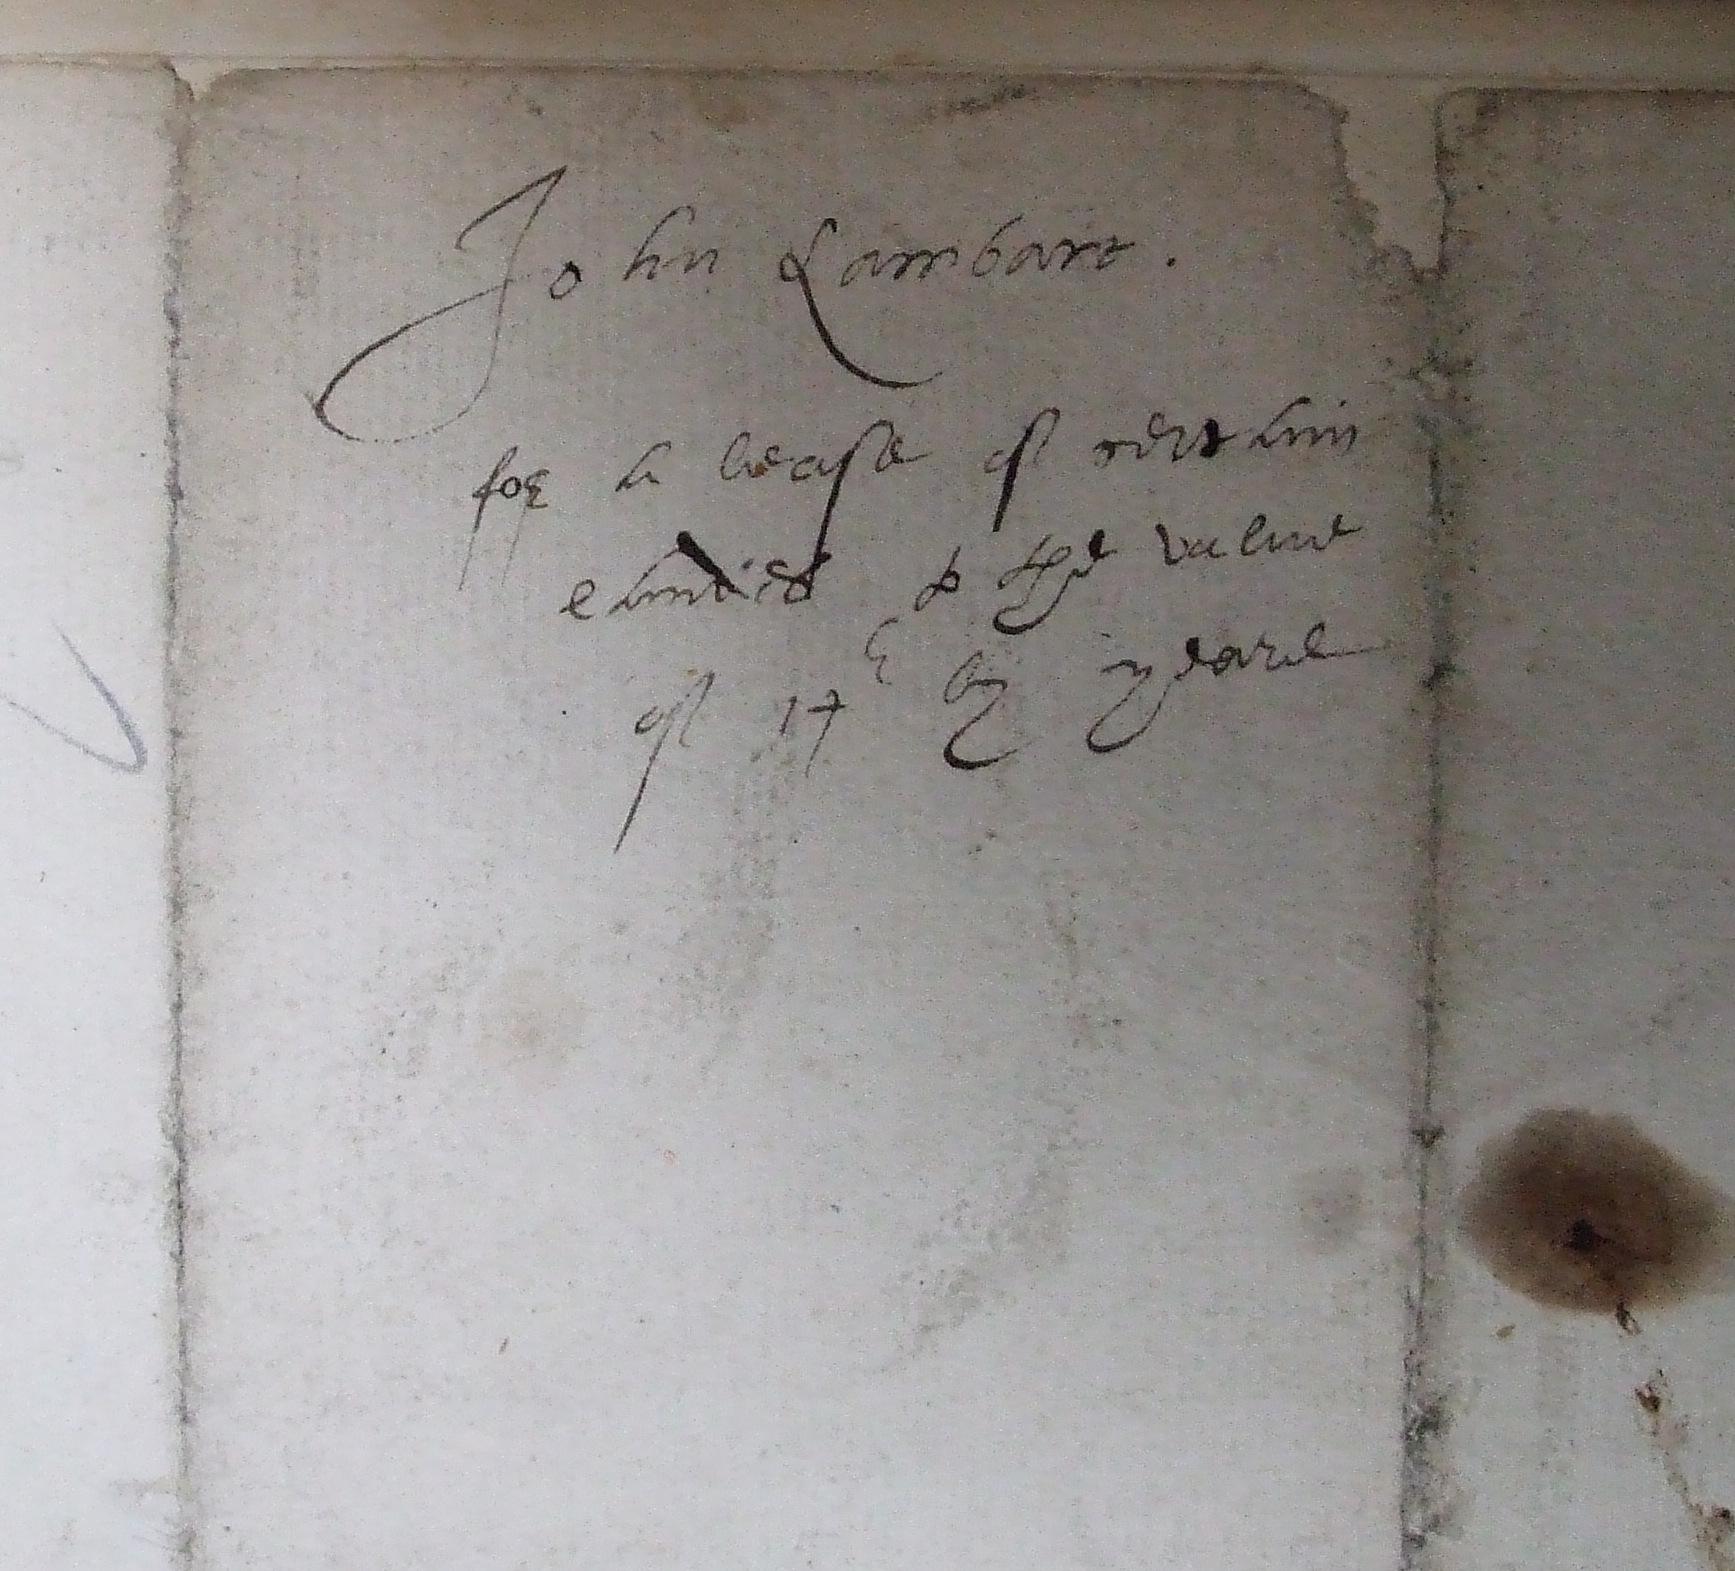 John Lambart.
for a lease of certain
landes to the value
of 17£ by yeare